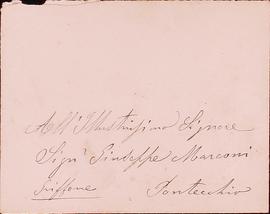 All' Illustrissimo Signore
Sign' Giuseppe Marconi
Griffone Pontecchio